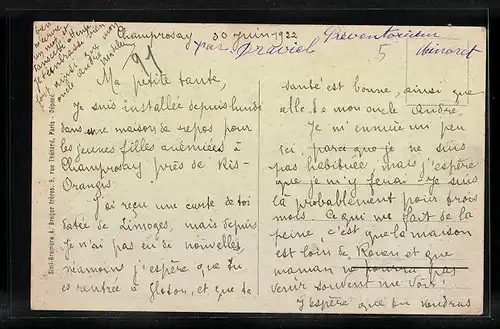 Champrosay 30 Juin 1922
par Draveil
Preventorium
Minoret
5
91
Ma petite tante,
Je suis installée depuis lundi
dans une maison de repos pour
les jeunes filles anémiées à
Champrosay près de Ris-
Orangis.
J'ai reçu une carte de toi
datée de Limoges, mais depuis
je n'ai pas eu de nouvelles,
néamoins j'espère que tu
es rentrée à et que ta
santé est bonne, ainsi que
celle de mon oncle André.
Je m'ennuie un peu
ici, parce que je ne suis
pas habituée, mais j'espère
que je m'y ferai - Je suis
là probablement pour trois
mois. Ce qui me fait de la
peine, c'est que la maison
est loin de Rouen et que
maman ne pourra pas
venir souvent me voir!
J'espère que tu voudras
bien
m'écrire
un mot et
t'embrasse bien
fort ainsi que mon
oncle
Simi-Bromure A. Breger frères, 9, rue Thénard, Paris - Déposé